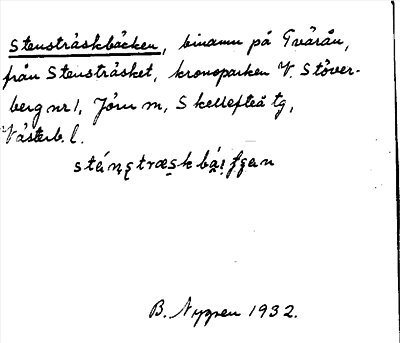 Stensträskbäcken, binamn på Tvärån,
från Stensträsket, kronoparken V. Stöver-
berg nr 1, Jörn sn, Skellefteå tg,
Västerb. l.
B. Nygren 1932.